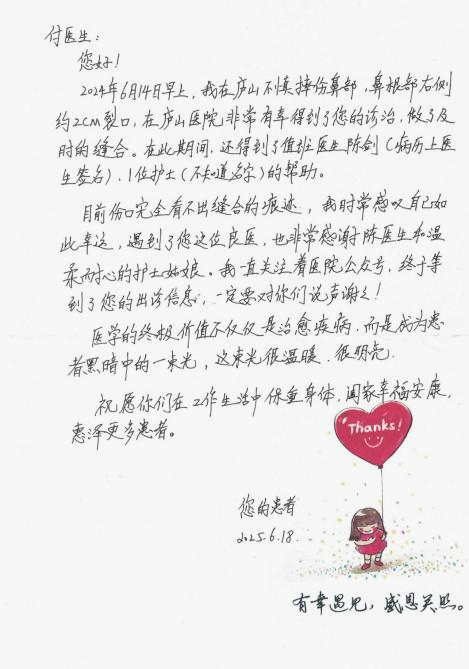 付医生：
您好！
2024年6月14日早上，我在庐山不慎摔伤鼻部，鼻根部右侧
约2cm裂口，在庐山医院非常有幸得到了您的诊治，做了及
时的缝合。在此期间，还得到了值班医生陈剑（病历上医
生签名）、1位护士（不知道名字）的帮助。
目前伤口完全看不出缝合的痕迹，我时常感叹自己如
此幸运，遇到了您这位良医，也非常感谢陈医生和温
柔而耐心的护士姑娘。我一直关注着医院公众号，终于等
到了您的出诊信息，一定要对你们说声谢谢！
医学的终极价值不仅仅是治愈疾病，而是成为患
者黑暗中的一束光，这束光很温暖、很明亮.
祝愿你们在工作生活中保重身体，阖家幸福安康，
惠泽更多患者。
Thanks!
您的患者
2025.6.18.
有幸遇见，感恩关照。